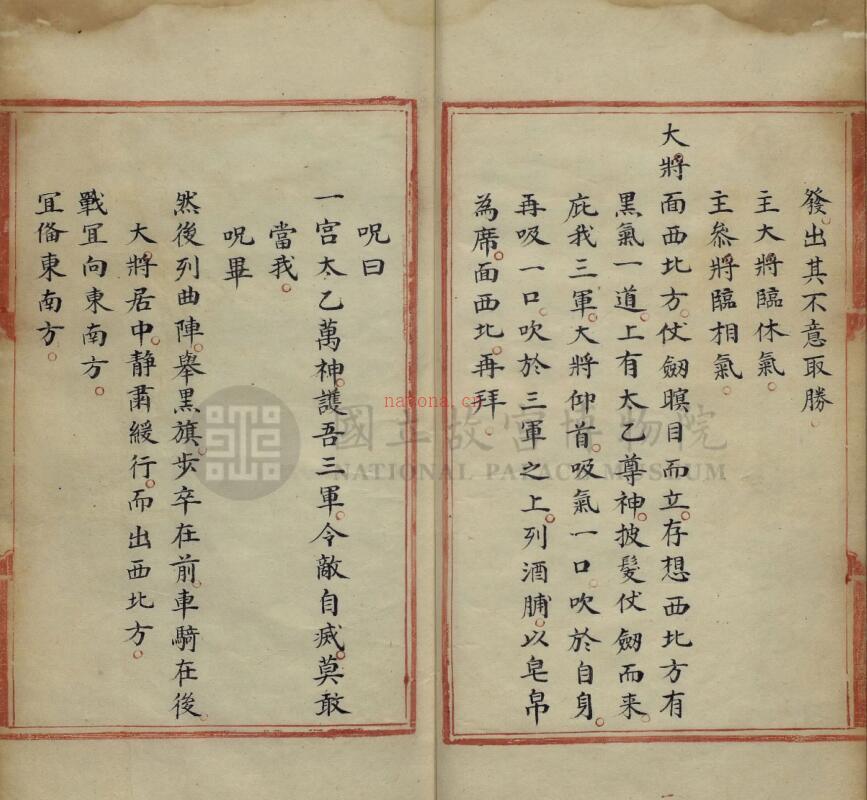 發出其不意取勝。
主大將臨休氣。
主參將臨相氣。
大將面西北方。仗劒瞑目而立。存想西北方有
黑氣一道。上有太乙尊神。披髮仗劒而来。
庇我三軍。大將仰首。吸氣一口。吹於自身。
再吸一口。吹於三軍之上。列酒脯。以皂帛
為席。面西北。再拜。
呪曰
一宫太乙萬神。護吾三軍。令敵自滅。莫敢
當我。
呪畢
然後列曲陣。舉黑旗。步卒在前。車騎在後。
大將居中。静肅緩行。而出西北方。
戰冝向東南方。
冝俻東南方。
國立故宮博物院
NATIONAL PALACE MUSEUM
natona.cn